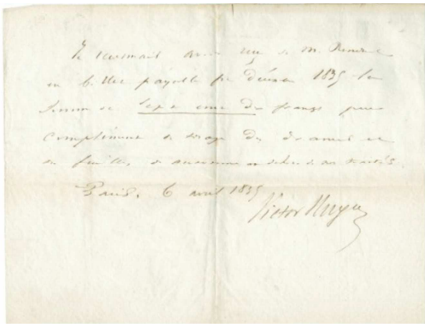 Je reconnais avoir reçu de M. Renduel
en billet payable fin décembre 1835 la
somme de Sept cent dix francs pour
complément de tirage des drames et
des feuilles d'automne en dehors de nos traités.
Paris, 6 avril 1835
Victor Hugo